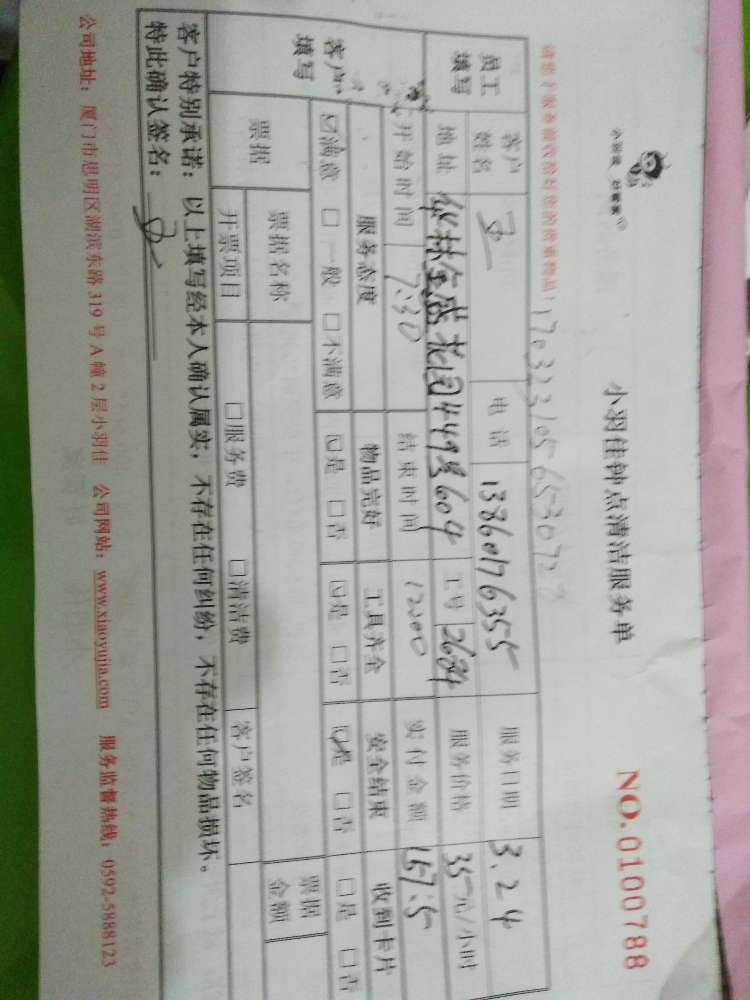 小羽佳 好管家
小羽佳钟点清洁服务单
NO.0100788
请您于服务前收拾好您的贵重物品!
员工填写
客户姓名 王 电话 13860176355 服务日期 3.24
地址 金盛花园449号604 工号 2684 服务价格 35元/小时
客户填写
开始时间 7:30 结束时间 12:00 实付金额 157.5
服务态度 物品完好 工具齐全 安全结束 收到卡片
☑满意 □一般 □不满意 ☑是 □否 ☑是 □否 ☑是 □否 □是 □否
票据 票据名称 票据金额
开票项目 □服务费 □清洁费 客户签名
客户特别承诺:以上填写经本人确认属实,不存在任何纠纷,不存在任何物品损坏。
特此确认签名:王
公司地址:厦门市思明区湖滨东路319号A幢2层小羽佳 公司网站:www.xiaoyujia.com 服务监督热线:0592-5888123